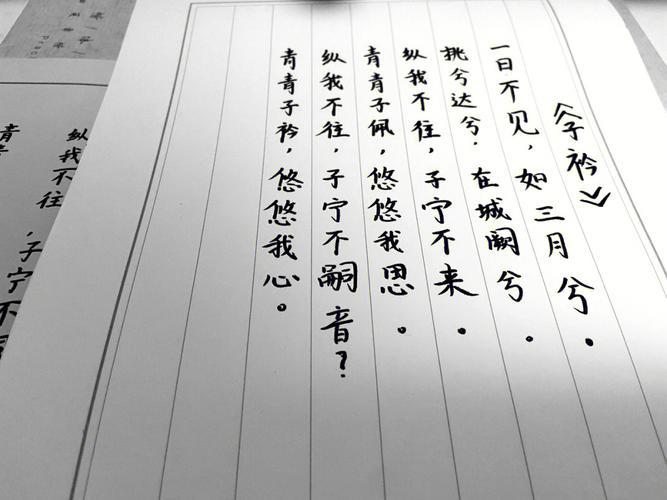 《子衿》
一日不见，如三月兮.
挑兮达兮.在城阙兮.
纵我不往，子宁不来.
青青子佩，悠悠我思.
纵我不往，子宁不嗣音？
青青子衿，悠悠我心。
纵我不往，子宁不
青